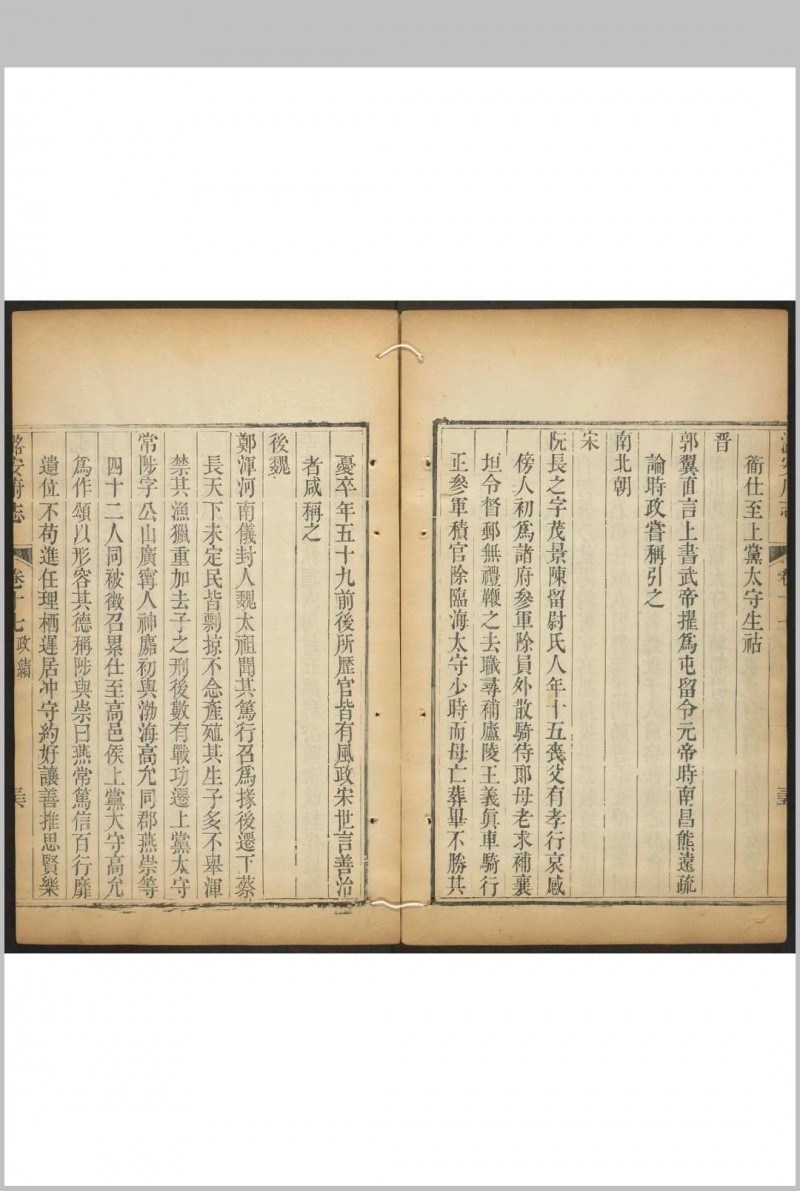 衞仕至上黨太守生祜
晋
郭翼直言上書武帝擢爲屯留令元帝時南昌熊遠疏
論時政嘗稱引之
南北朝
宋
阮長之字茂景陳留尉氏人年十五喪父有孝行哀感
傍人初爲諸府參軍除員外散騎侍郎母老求補襄
垣令督郵無禮鞭之去職尋補廬陵王義眞車騎行
正參軍積官除臨海太守少時而母亡葬畢不勝其
憂卒年五十九前後所歷官皆有風政宋世言善治
者咸稱之
後魏
鄭渾河南儀封人魏太祖聞其篤行召爲掾後遷下蔡
長天下未定民皆剽掠不念產殖其生子多不舉渾
禁其漁獵重加去子之刑後數有戰功遷上黨太守
常陟字公山廣甯人神䴥初與渤海高允同郡燕崇等
四十二人同被徵召累仕至高邑侯上黨大守高允
爲作頌以形容其德稱陟與崇曰燕常篤信百行靡
遺位不苟進任理栖遲居冲守約好讓善推思賢樂
潞安府志 卷十七 政績